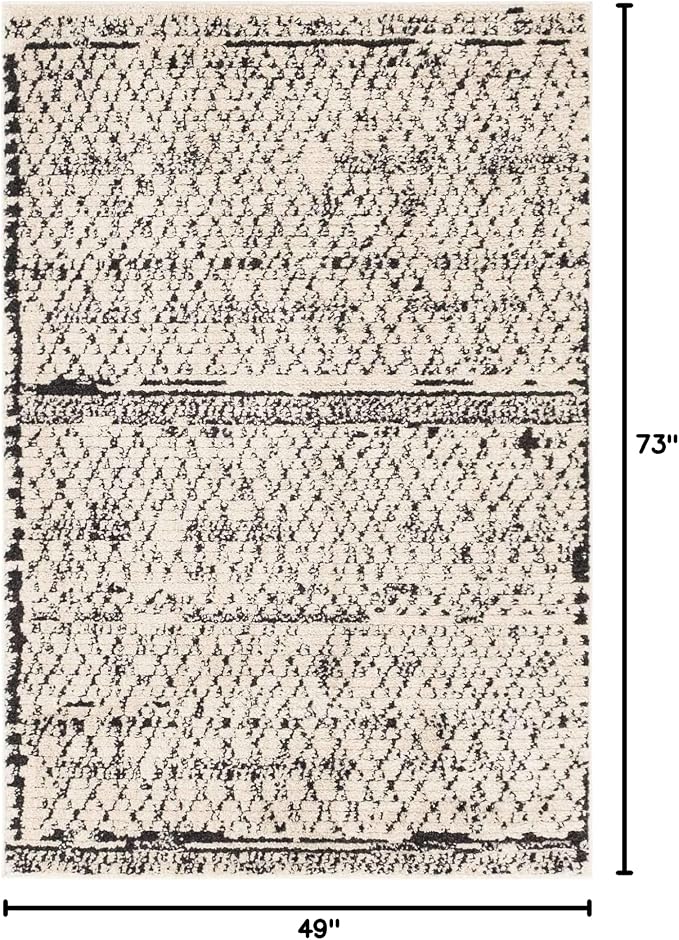 73"
49"